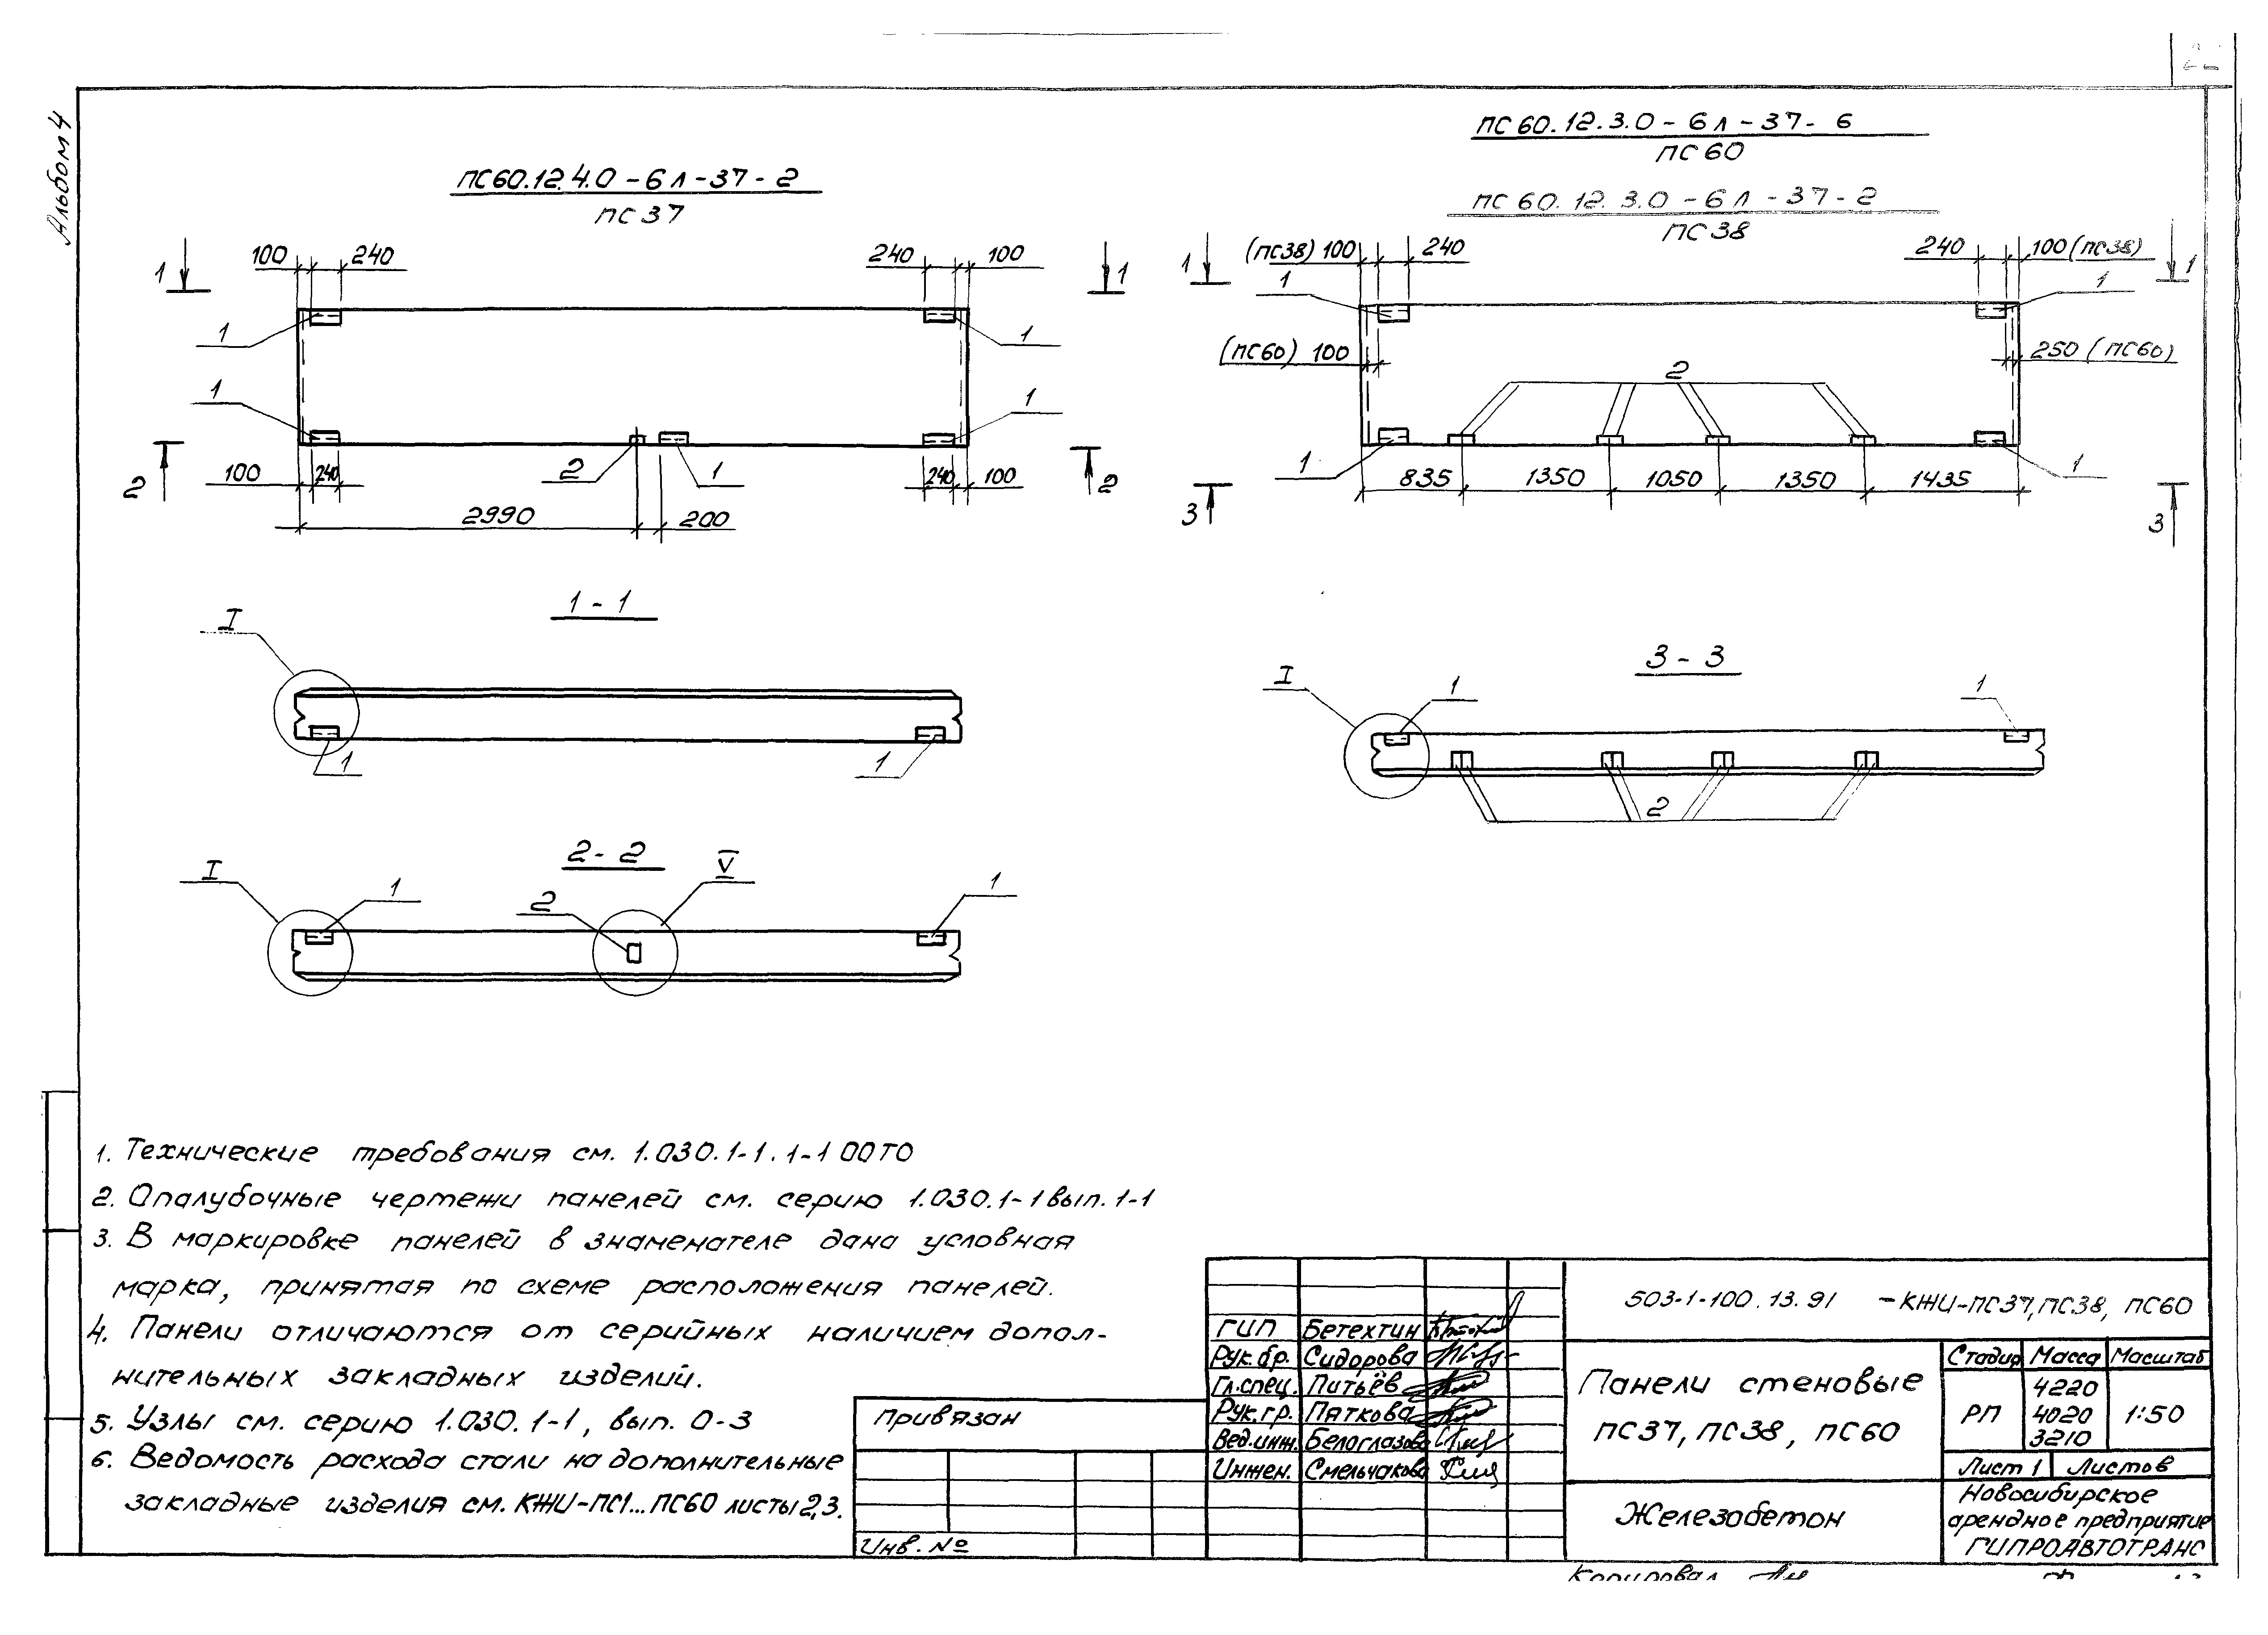 Альбом 4
ПС60.12.4.0-6Л-37-2
ПС37
100 240 240 100
1 1
1 1
1 1
2 100 240 2 1 240 100 2
2990 200
ПС60.12.3.0-6Л-37-6
ПС60
ПС60.12.3.0-6Л-37-2
ПС38
(ПС38) 100 240 240 100 (ПС38)
1 1 1 1
(ПС60) 100 250 (ПС60)
2
1 1
835 1350 1050 1350 1435
3 3
1-1
I
1 1
2-2
I 1 2 V 1
3-3
I 1 1
2
1. Технические требования см. 1.030.1-1.1-1 00ТО
2. Опалубочные чертежи панелей см. серию 1.030.1-1 вып. 1-1
3. В маркировке панелей в знаменателе дана условная
марка, принятая по схеме расположения панелей.
4. Панели отличаются от серийных наличием допол-
нительных закладных изделий.
5. Узлы см. серию 1.030.1-1, вып. 0-3
6. Ведомость расхода стали на дополнительные
закладные изделия см. КЖИ-ПС1...ПС60 листы 2,3.
Привязан
Инв. №
ГИП Бетехтин
Рук.бр. Сидорова
Гл.спец. Питьёв
Рук.гр. Пяткова
Вед.инж. Белоглазова
Инжен. Смельчакова
503-1-100.13.91 -КЖИ-ПС37, ПС38, ПС60
Панели стеновые
ПС37, ПС38, ПС60
Стадия Масса Масштаб
РП 4220 4020 3210 1:50
Лист 1 Листов
Железобетон
Новосибирское
арендное предприятие
ГИПРОАВТОТРАНС
Копировал